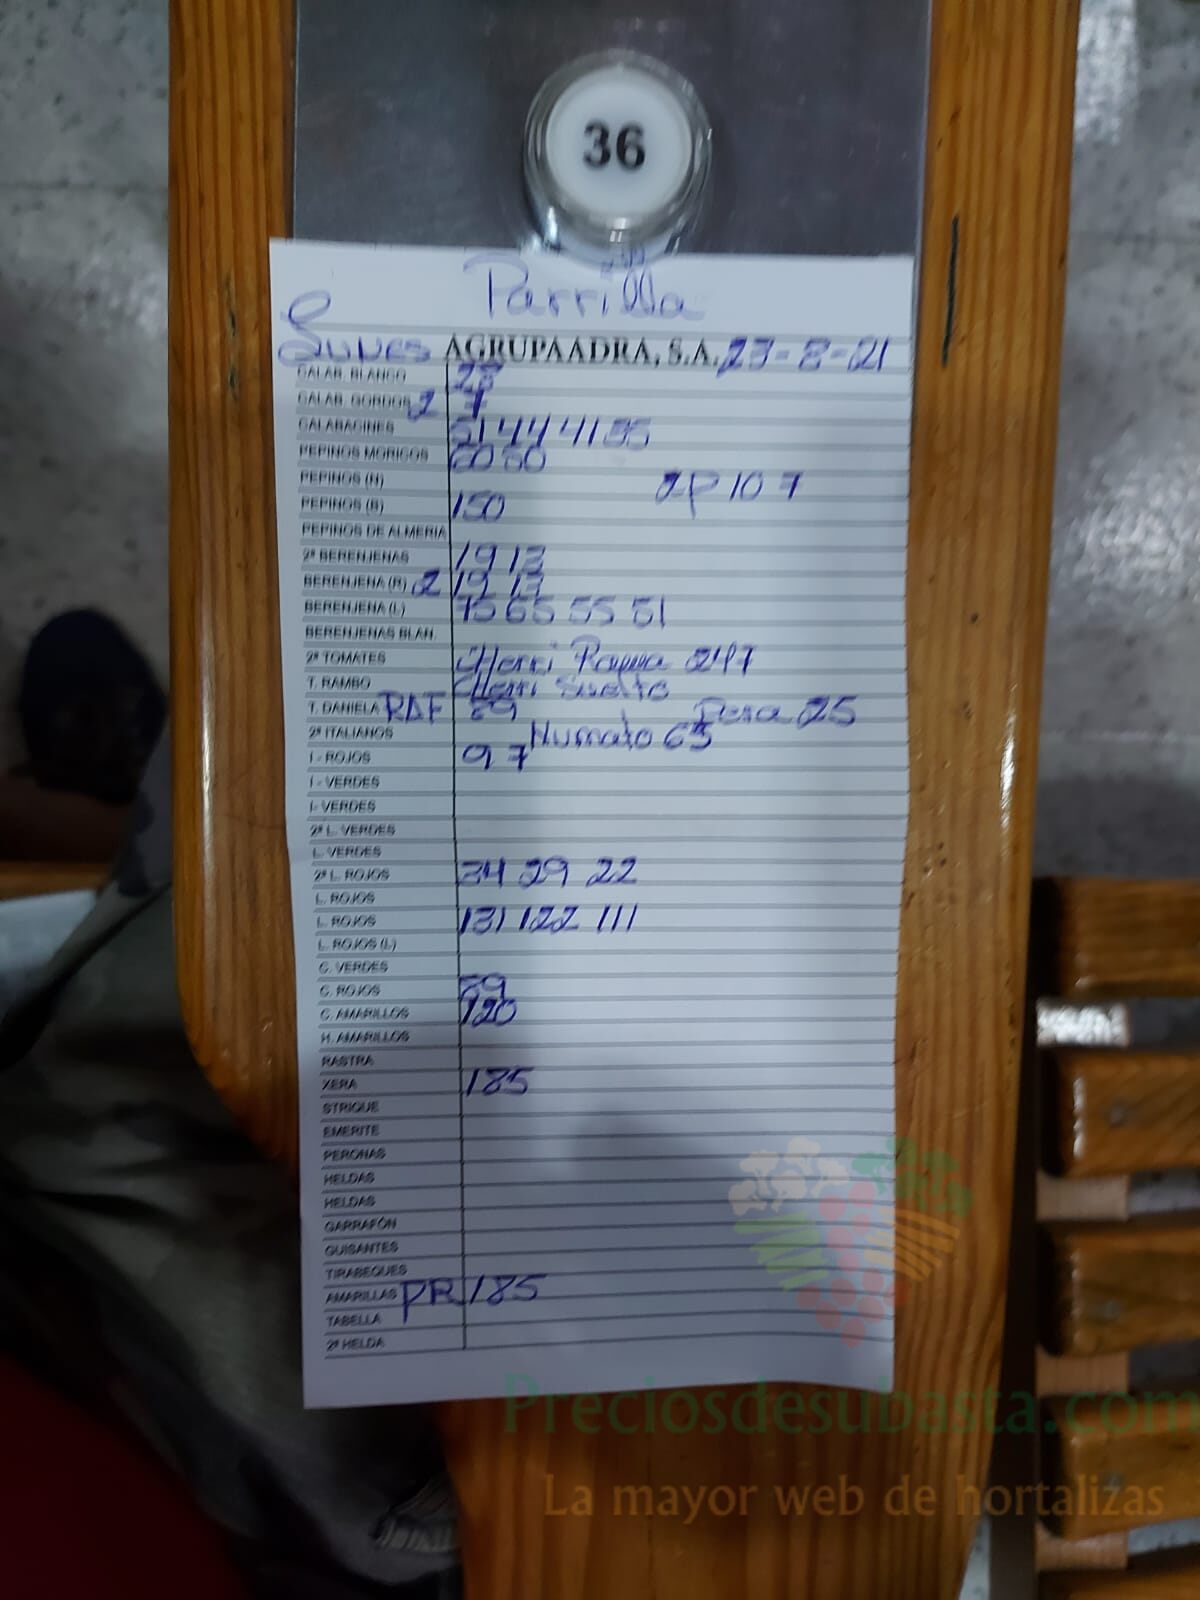 36
Parrilla
Lunes AGRUPAADRA, S.A. 23-8-21
CALAB. BLANCO 28
CALAB. GORDOS 2 7
CALABACINES 51 44 41 35
PEPINOS MORICOS 60 50
PEPINOS (N) 2P 10 7
PEPINOS (B) 150
PEPINOS DE ALMERIA
2ª BERENJENAS 19 13
BERENJENA (R) 2 19 13
BERENJENA (L) 75 65 55 51
BERENJENAS BLAN.
2ª TOMATES Cherri Rama 247
T. RAMBO Cherri Suelto
T. DANIELA RAF 89 Pera 25
2ª ITALIANOS Numato 65
I - ROJOS 9 7
I - VERDES
I- VERDES
2ª L. VERDES
L. VERDES
2ª L. ROJOS 34 29 22
L. ROJOS
L. ROJOS 131 122 111
L. ROJOS (L)
C. VERDES
C. ROJOS 89
C. AMARILLOS 120
H. AMARILLOS
RASTRA
XERA 185
STRIQUE
EMERITE
PERONAS
HELDAS
HELDAS
GARRAFÓN
GUISANTES
TIRABEQUES
AMARILLAS PR 185
TABELLA
2ª HELDA
Preciosdesubasta.com
La mayor web de hortalizas